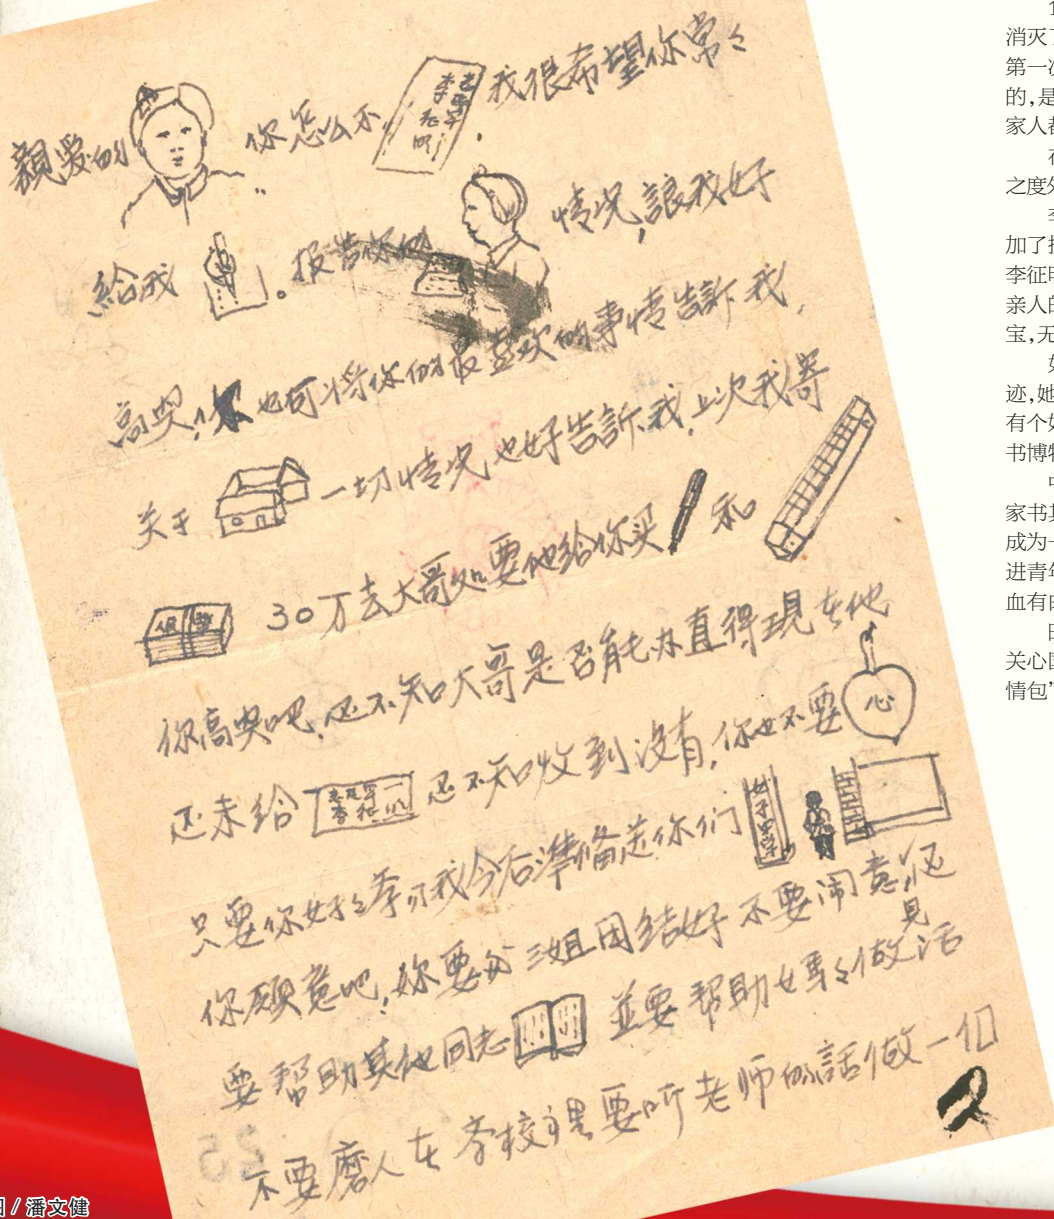 親爱的 你怎么不 李老四 我很希望你常々
給我 。报告你的 情况,讓我好
高兴,你也可将你的最喜欢的事情告訴我,
关于 一切情况也好告訴我,上次我寄
30万去大哥处要他给你买 和
你高兴吧,还不知大哥是否能办直得現在他
还未给 还不知收到没有,你也不要 心
只要你好好学习我今后準备送你们 女子中学
你願意吧,你要与三姐団结好不要闹意见
要帮助其他同志 並要帮助妈々做活
不要磨人在学校里要听老师的話做一们
2
消灭了
第一次
的,是
家人都
之度外
加了抗
李征明
亲人的
宝,无
迹,她
有个如
书博物
中
家书共
成为一
进青年
血有肉
关心国
情包”
图 / 潘文健